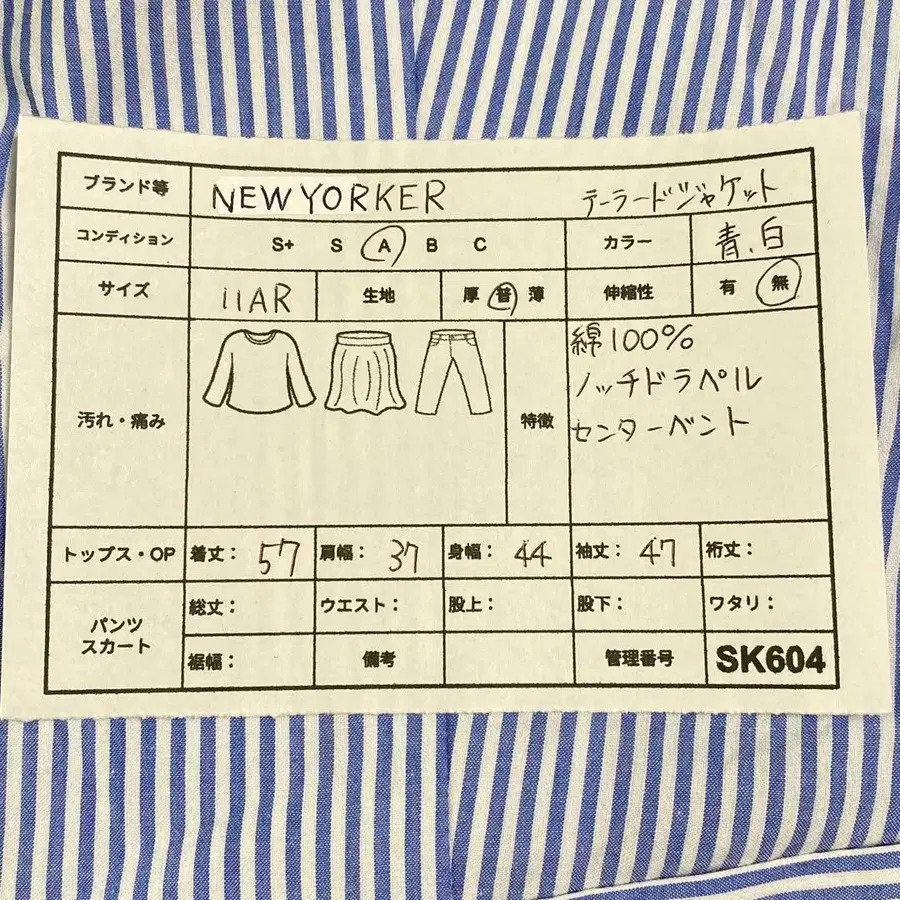 ブランド等 NEWYORKER テーラードジャケット
コンディション S+ S A B C カラー 青、白
サイズ 11AR 生地 厚 普 薄 伸縮性 有 無
汚れ・痛み 特徴 綿100%
ノッチドラペル
センターベント
トップス・OP 着丈：57 肩幅：37 身幅：44 袖丈：47 裄丈：
パンツ スカート 総丈： ウエスト： 股上： 股下： ワタリ：
裾幅： 備考 管理番号 SK604